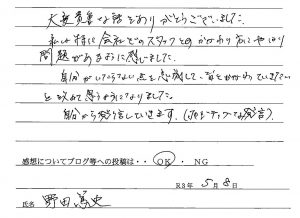 大変貴重な話をありがとうございました。
私は特に会社でのスタッフとのかかわり方にやはり
問題があるように感じました。
自分がいたらない点を意識して、皆とかかわっていきたい
と改めて思うようになりました。
自分から発信していきます。
感想についてブログ等への投稿は・・ OK ・ NG
R3年 5月 8日
氏名 野田